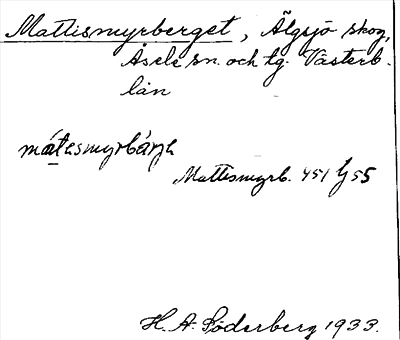 Mattismyrberget, Älgsjö skog,
Åsele sn. och tg. Västerb.
län
Mattismyrb. 451
H. A. Söderberg 1933.